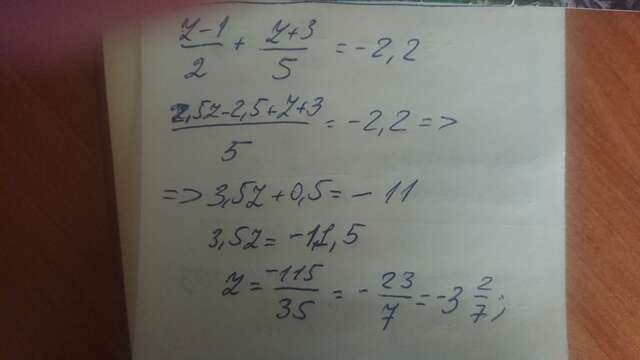 (z-1)/2 + (z+3)/5 = -2,2
(2,5z-2,5+z+3)/5 = -2,2 =>
=> 3,5z+0,5 = -11
3,5z = -11,5
z = -115/35 = -23/7 = -3 2/7;